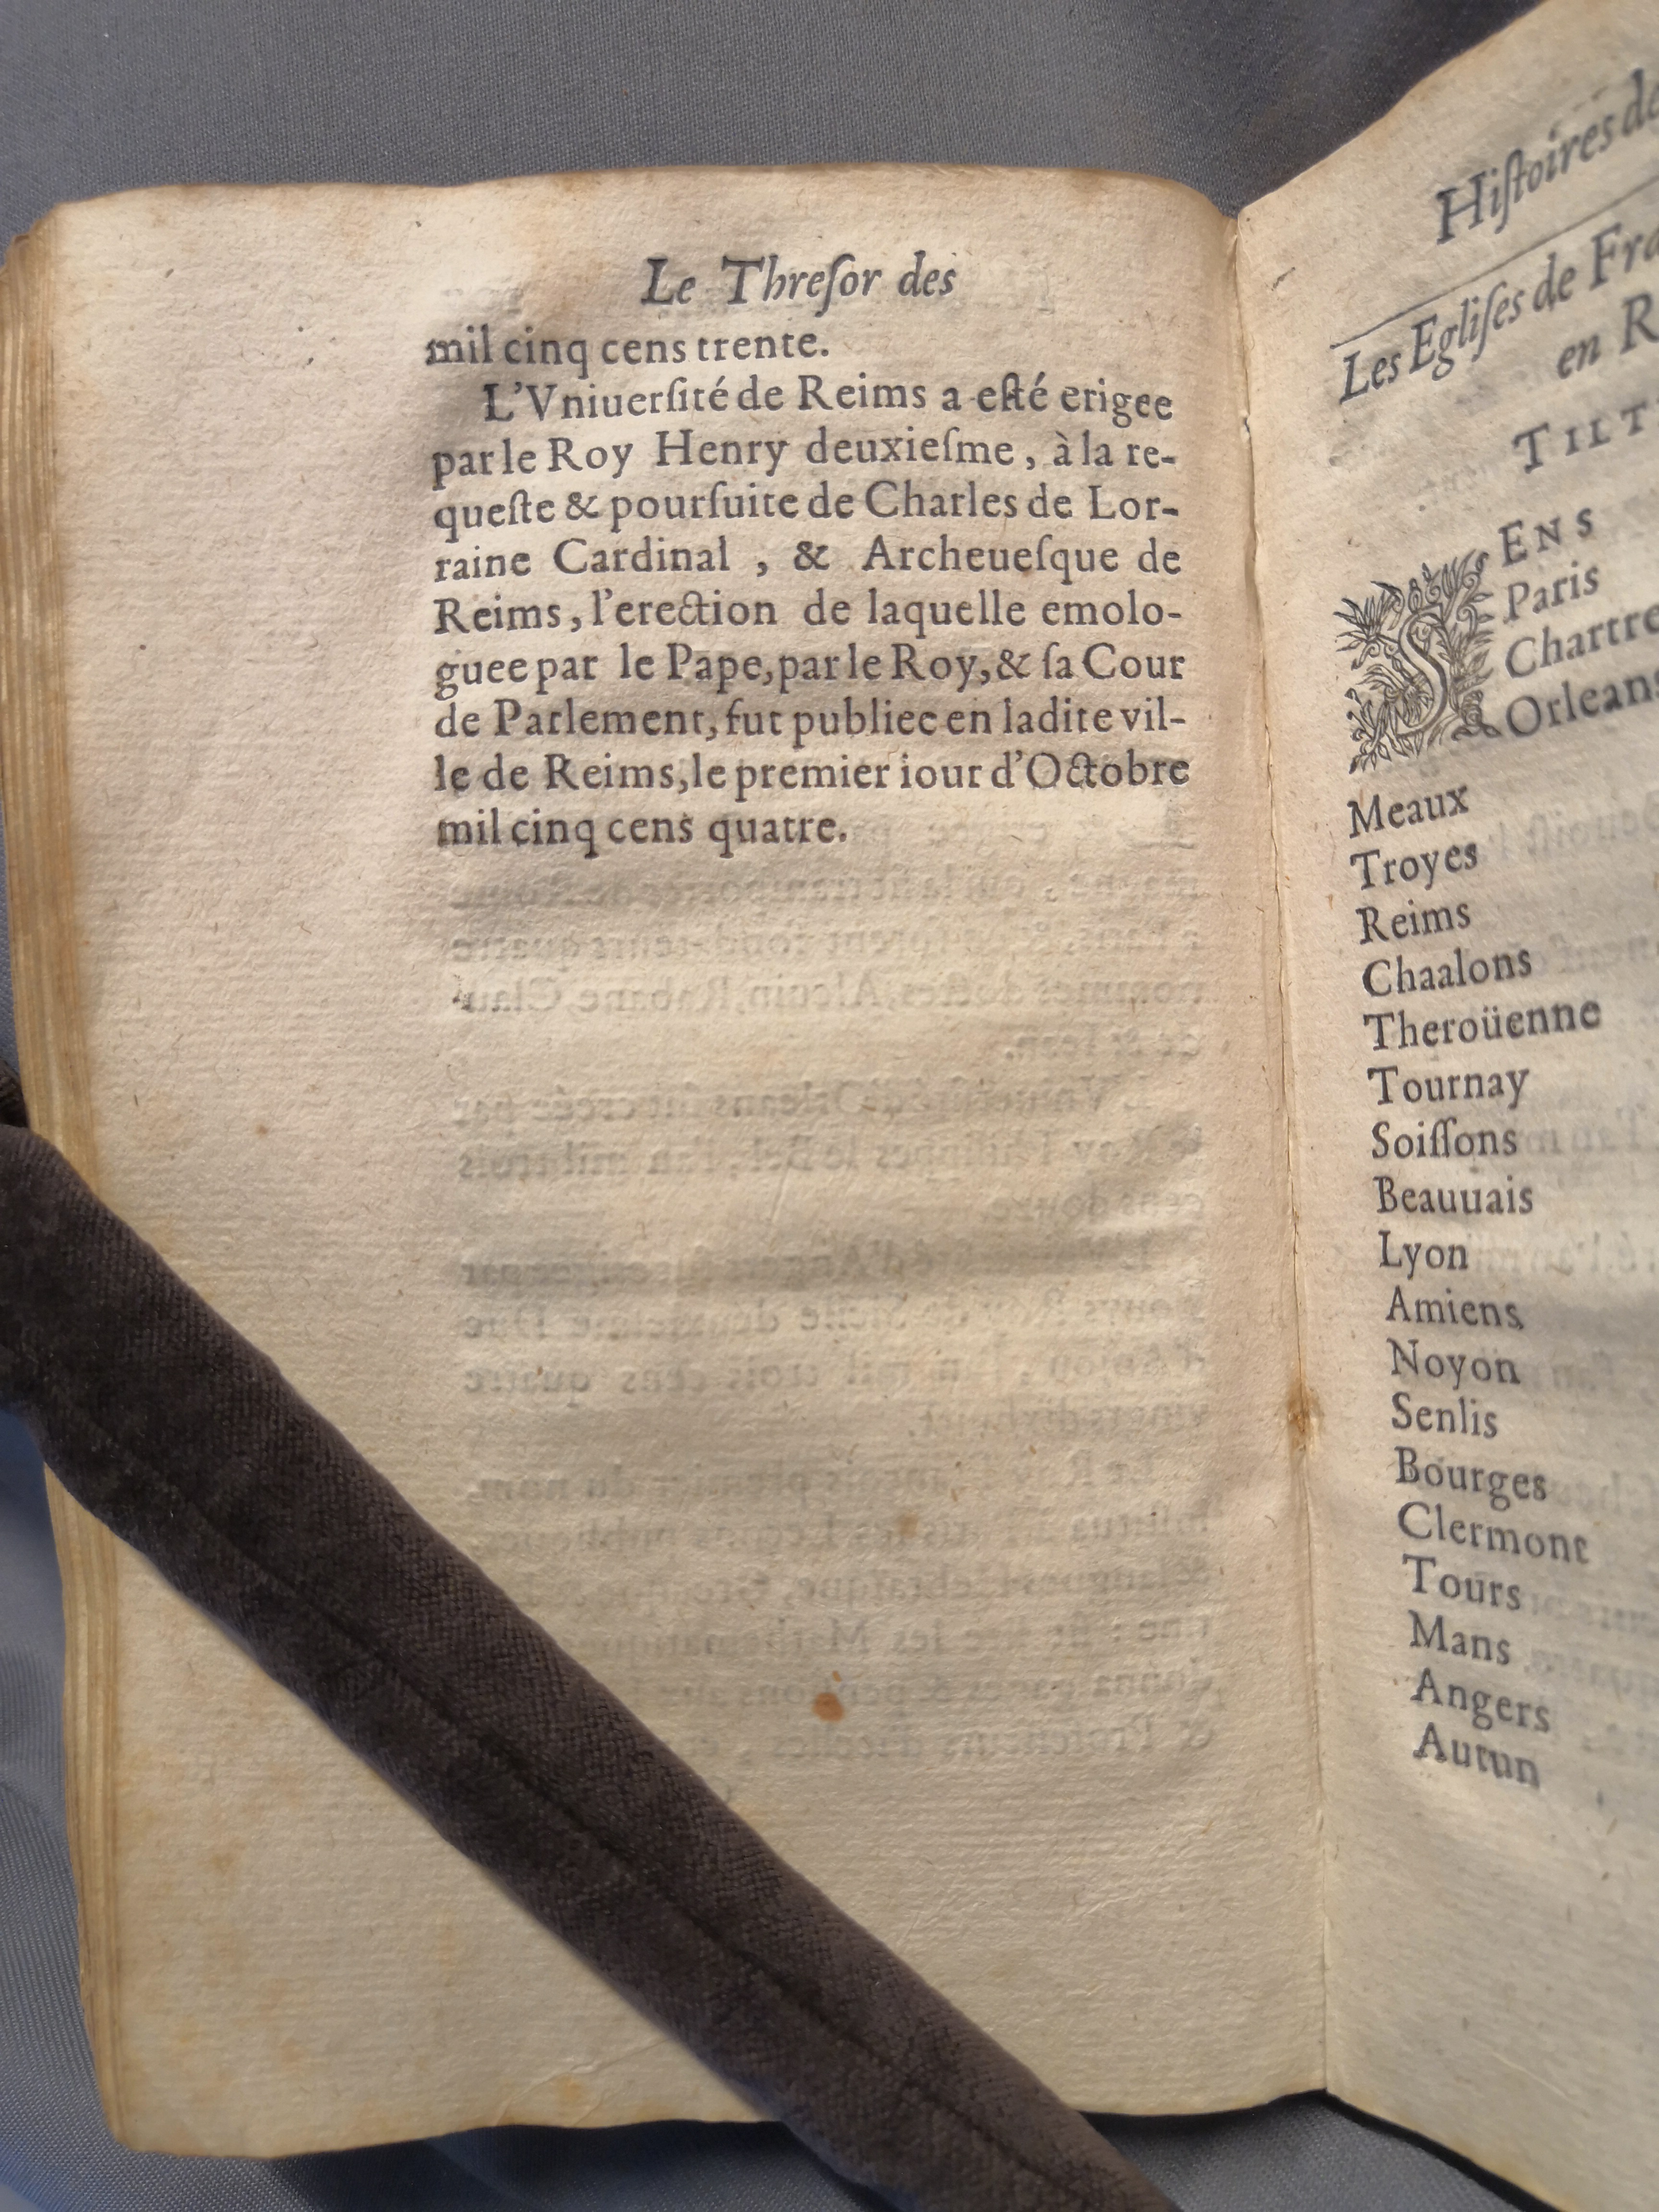 Le Threſor des
mil cinq cens trente.
L'Vniuerſité de Reims a eſté erigee
par le Roy Henry deuxieſme, à la re-
queſte & pourſuite de Charles de Lor-
raine Cardinal, & Archeueſque de
Reims, l'erection de laquelle emolo-
guee par le Pape, par le Roy, & ſa Cour
de Parlement, fut publiee en ladite vil-
le de Reims, le premier iour d'Octobre
mil cinq cens quatre.
Hiſtoires
Les Egliſes de
en
SENS
Paris
Orleans
Meaux
Troyes
Reims
Chaalons
Theroüenne
Tournay
Soiſſons
Beauuais
Lyon
Amiens
Noyon
Senlis
Bourges
Clermont
Tours
Mans
Angers
Autun